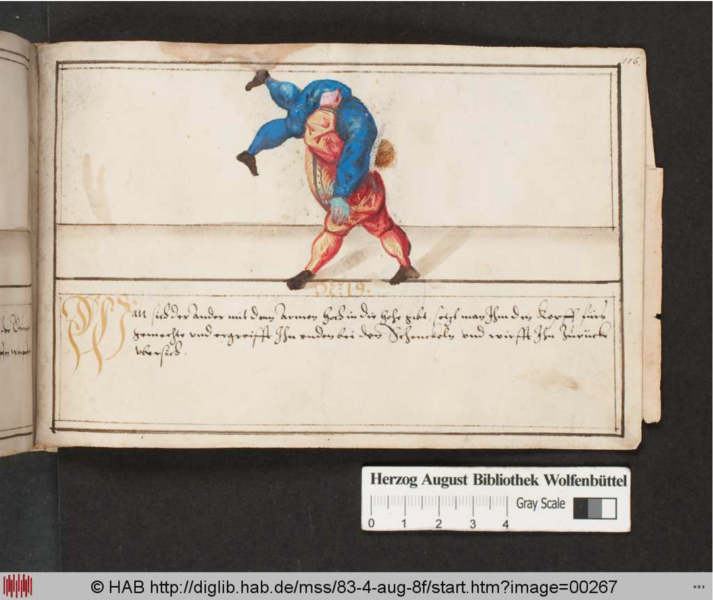 116.
Wan sich der Ander mit dem Armen hoch in die hohe gibt setzt man Ihm den Kopff fürs
gemechte und ergreifft Ihn unden bei den Schenckeln und wirfft Ihn zurück
vbersich.
Herzog August Bibliothek Wolfenbüttel
Gray Scale
0 1 2 3 4
© HAB http://diglib.hab.de/mss/83-4-aug-8f/start.htm?image=00267